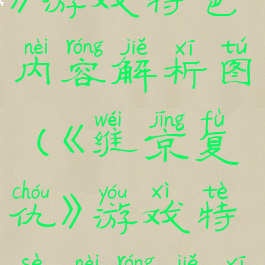 》游戏特色
nèi róng jiě xī tú
内容解析图
wéi jīng fù
(《维京复
chóu yóu xì tè
仇》游戏特
sè nèi róng jiě xī